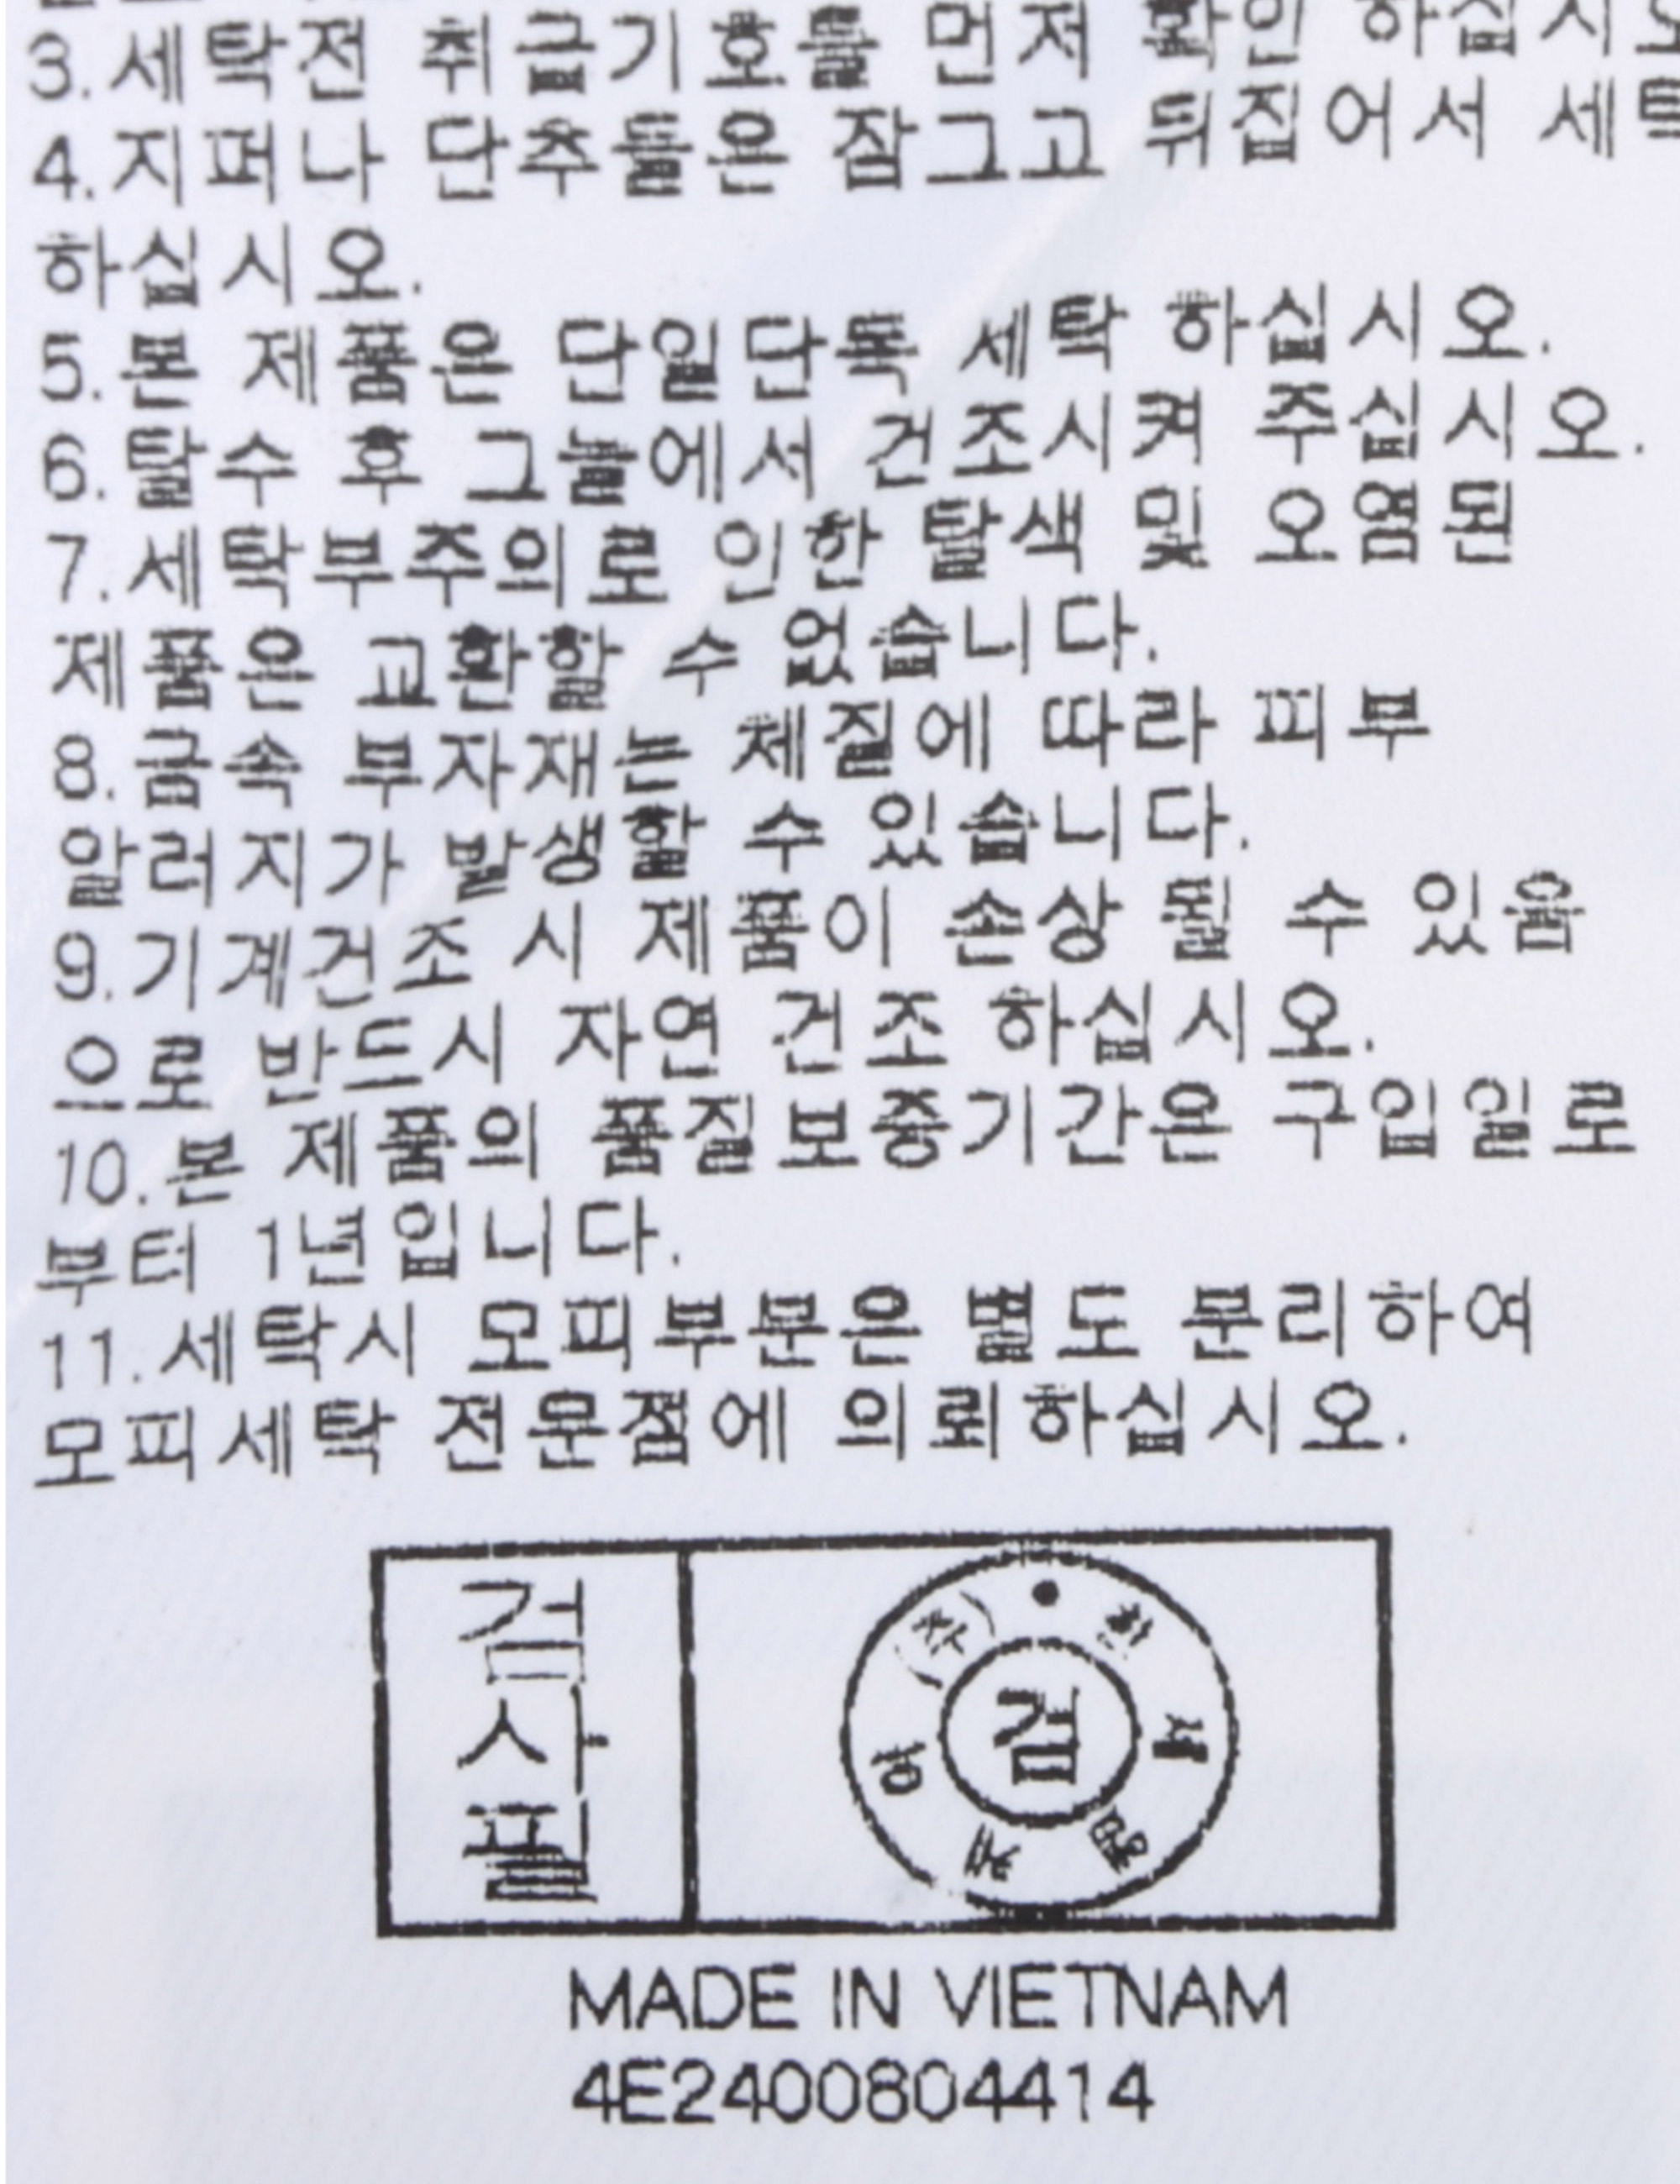 3.세탁전 취급기호를 먼저 확인 하십시오
4.지퍼나 단추들은 잠그고 뒤집어서 세탁
하십시오.
5.본 제품은 단일단독 세탁 하십시오.
6.탈수 후 그늘에서 건조시켜 주십시오.
7.세탁부주의로 인한 탈색 및 오염된
제품은 교환할 수 없습니다.
8.금속 부자재는 체질에 따라 피부
알러지가 발생할 수 있습니다.
9.기계건조 시 제품이 손상 될 수 있음
으로 반드시 자연 건조 하십시오.
10.본 제품의 품질보증기간은 구입일로
부터 1년입니다.
11.세탁시 모피부분은 별도 분리하여
모피세탁 전문점에 의뢰하십시오.
검사필
(주)
검
MADE IN VIETNAM
4E2400804414